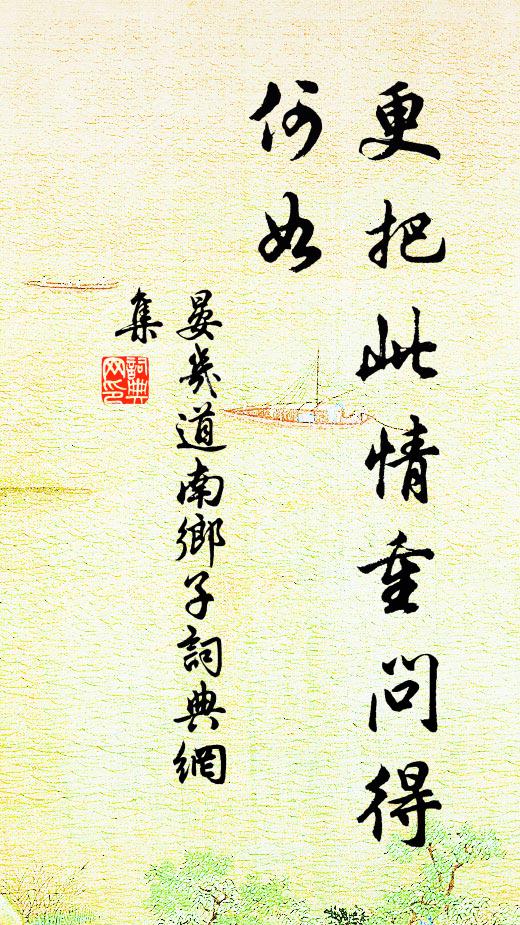 更把此情重問得
何如
晏幾道南鄉子詞典網
集
詞典
网印